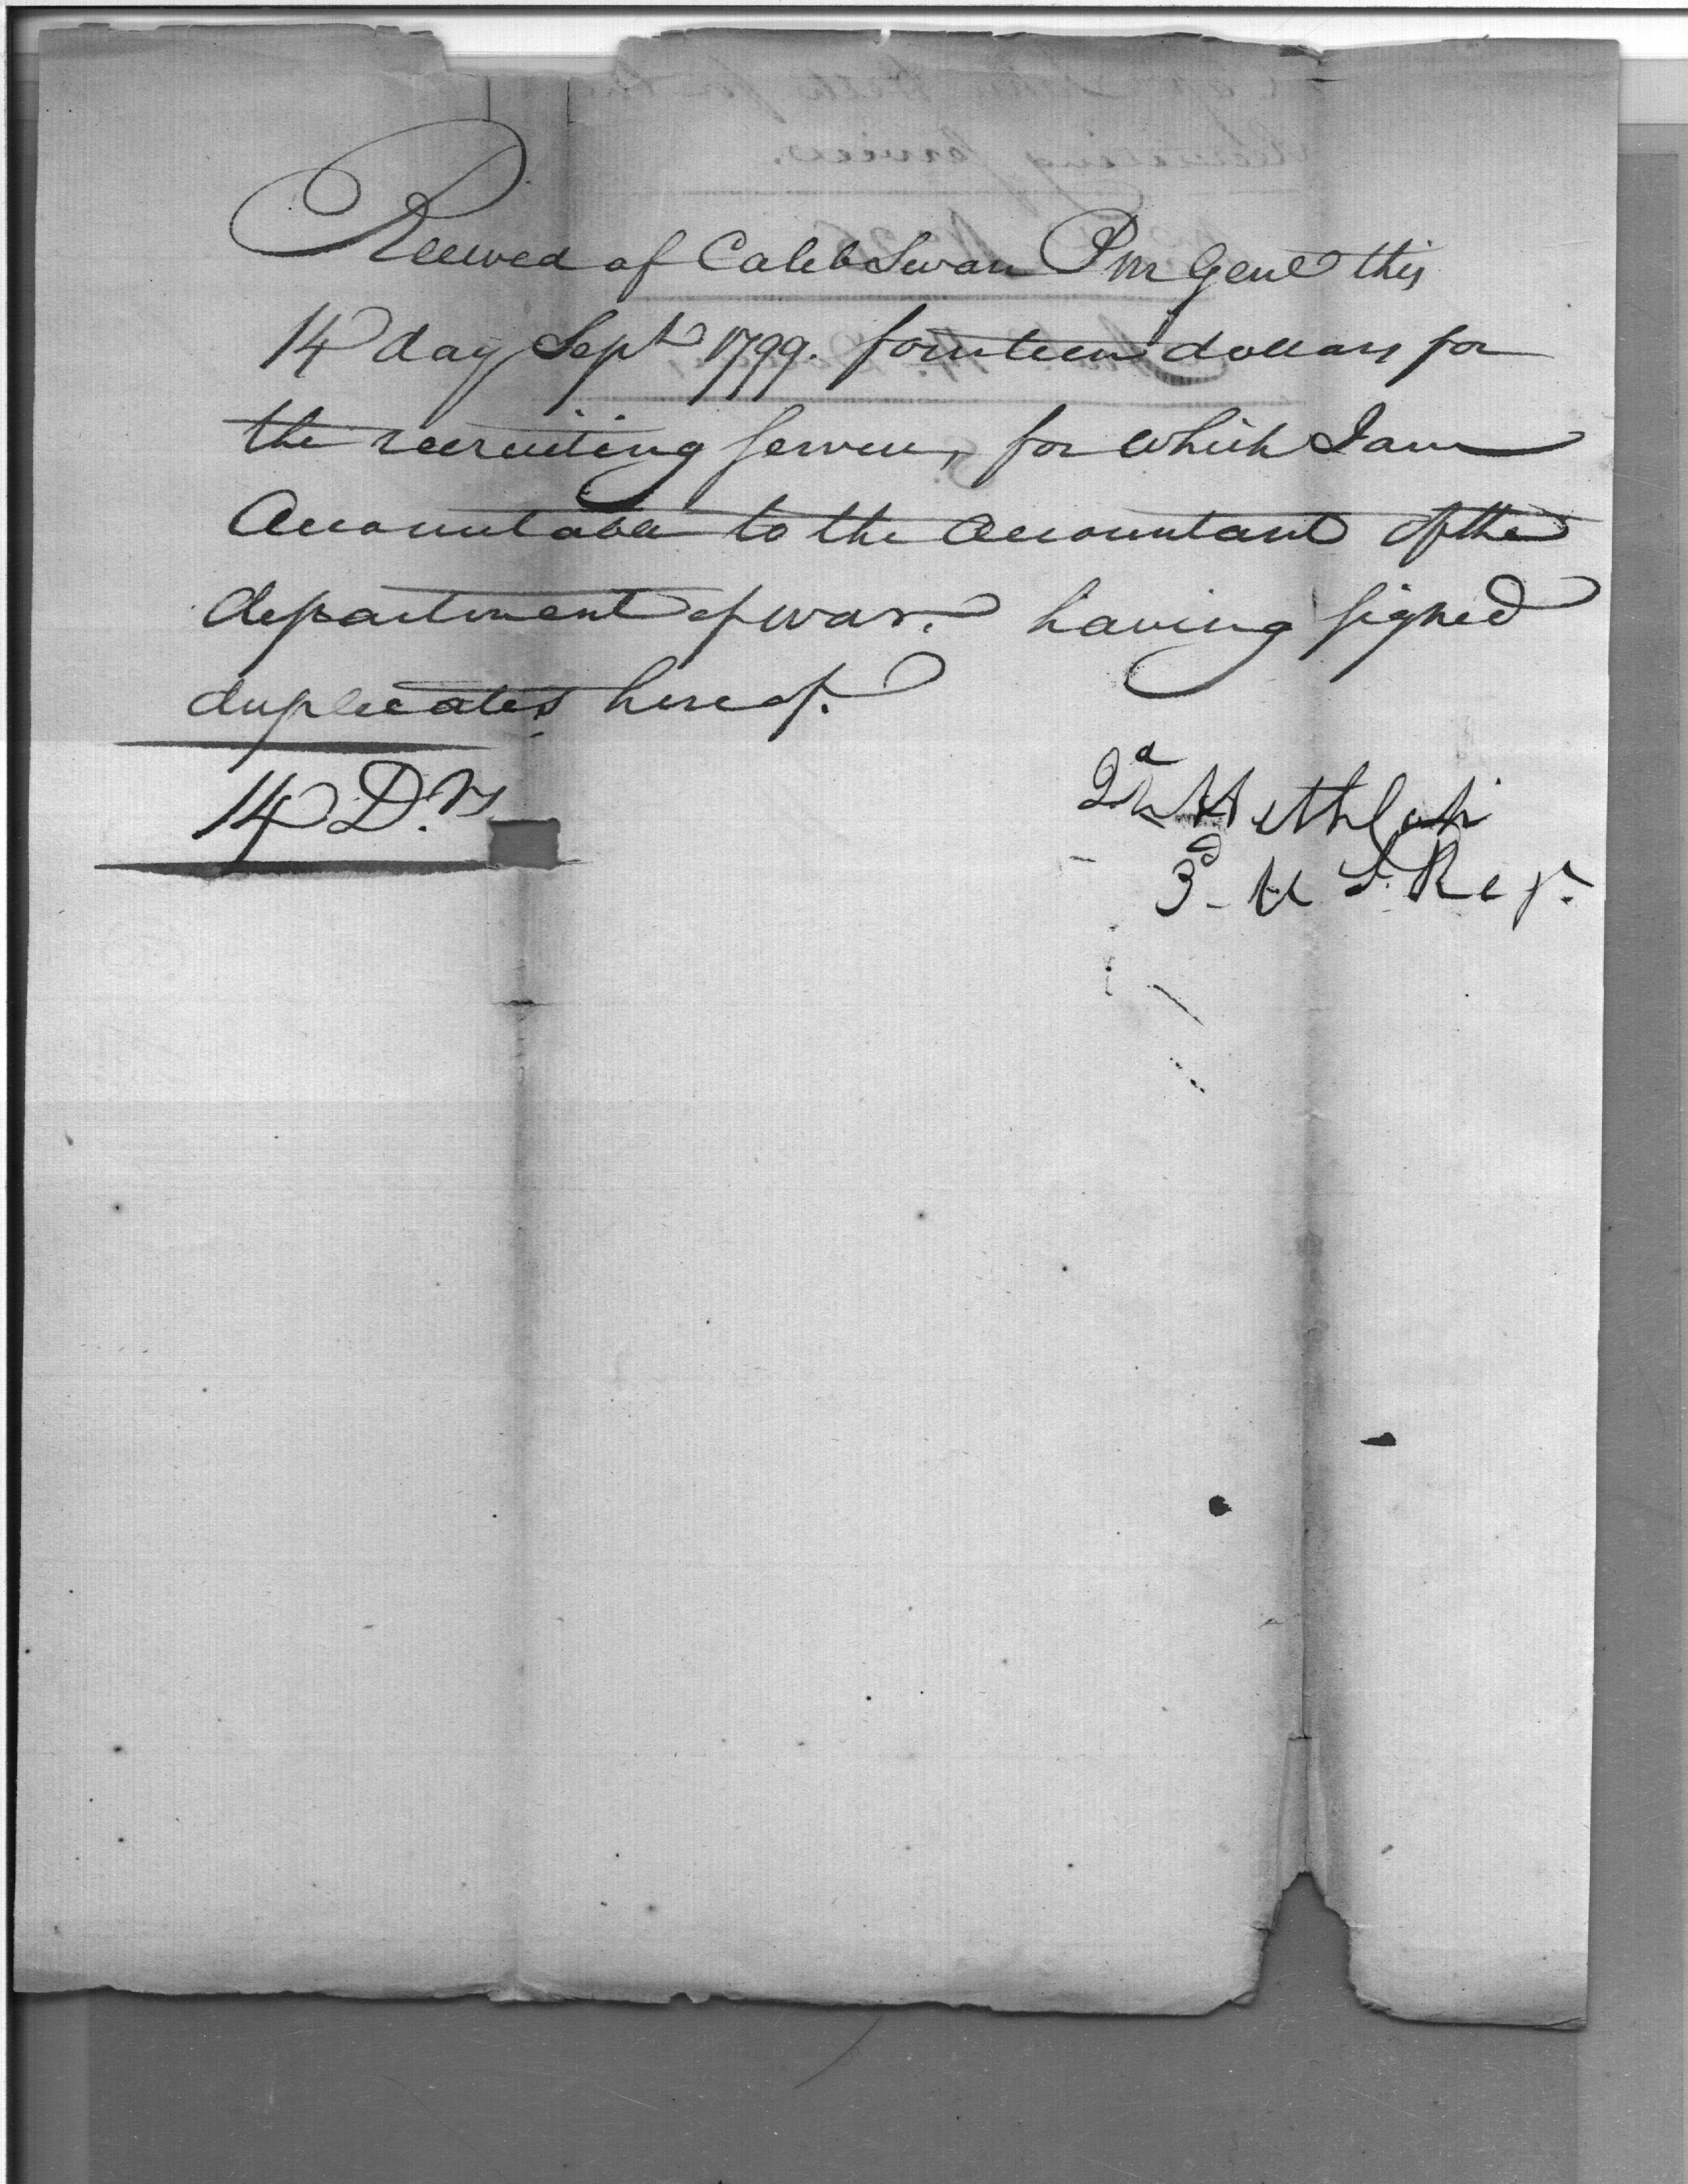 Received of Caleb Swan P M Genl this
14 day Sept 1799. fourteen dollars for
the recruiting service, for which I am
Accountable to the Accountant of the
department of war. having signed
duplicates hereof.
14 D.rs
3d U S. Reg.